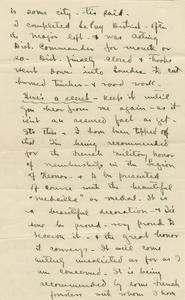 is some city - tis said.
I completed Le Puy District - after
the major left & was acting
Dist. Commander for month or
so - Dist. finally closed & troops
went down into Landes to cut
horrid timber - & road work.
Here's a secret - keep it until
you hear from me again - as it
isn't an assured fact as yet -
It's this - I have been tipped off
that I'm being recommended
for the French military honor
of membership in the Legion
of Honor - & to be presented
of course with the beautiful
"medaille" or medal. It is
a beautiful decoration - & I'd
sure be proud - very proud to
receive it - & the great honor
it conveys. It will come
entirely unsolicited as far as I
am concerned. It is being
recommended by some French
with whom I have